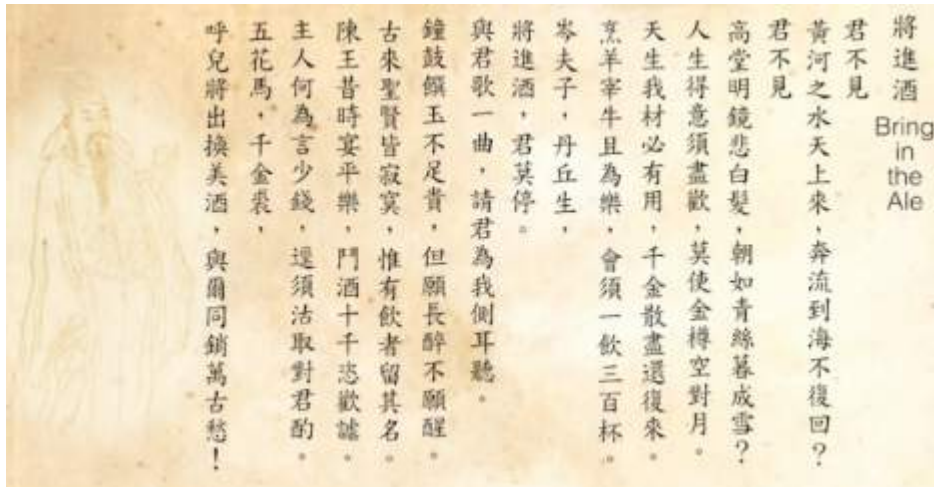 將進酒
Bring
in
the
Ale
君不見
黃河之水天上來，奔流到海不復回？
君不見
高堂明鏡悲白髮，朝如青絲暮成雪？
人生得意須盡歡，莫使金樽空對月。
天生我材必有用，千金散盡還復來。
烹羊宰牛且為樂，會須一飲三百杯。
岑夫子，丹丘生，
將進酒，君莫停。
與君歌一曲，請君為我側耳聽。
鐘鼓饌玉不足貴，但願長醉不願醒。
古來聖賢皆寂寞，惟有飲者留其名。
陳王昔時宴平樂，鬥酒十千恣歡謔。
主人何為言少錢，逕須沽取對君酌。
五花馬，千金裘，
呼兒將出換美酒，與爾同銷萬古愁！